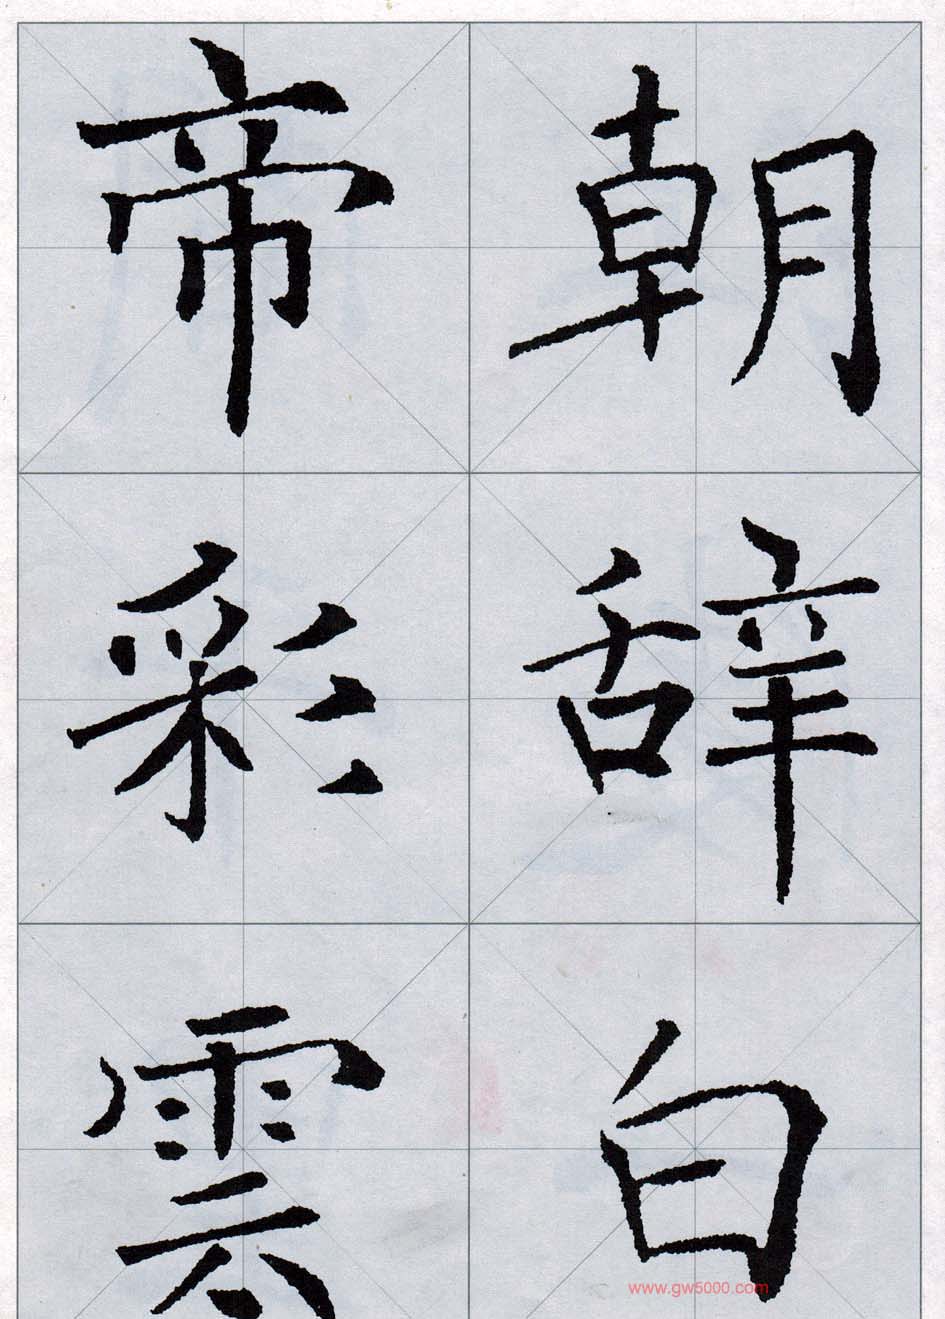 朝辞白
帝彩雲
www.gw5000.com